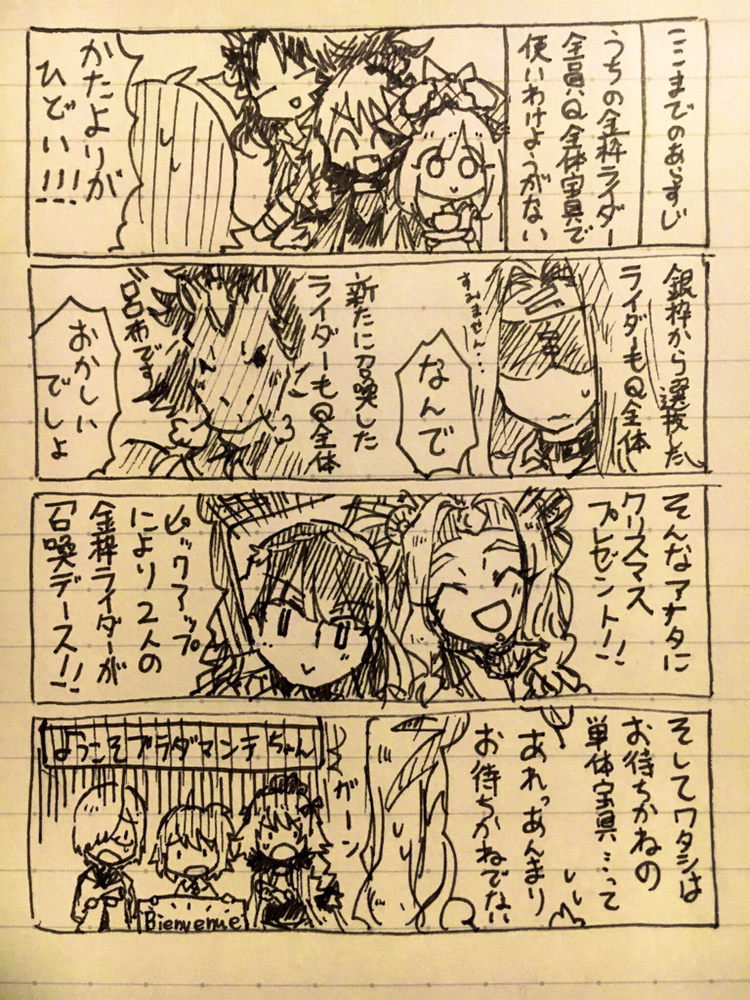 ここまでのあらすじ
うちの金枠ライダー
全員Q全体宝具で
使いわけようがない
かたよりが
ひどい!!!
銀枠から選抜した
ライダーもQ全体
すみません…
なんで
新たに召喚した
ライダーもQ全体
呂布です
おかしい
でしょ
そんなアナタに
クリスマス
プレゼント!!
ピックアップ
により2人の
金枠ライダーが
召喚デース!!
そしてワタシは
お待ちかねの
単体宝具…って
あれっあんまり
お待ちかねでない
ガーン
ようこそブラダマンテちゃん
Bienvenue